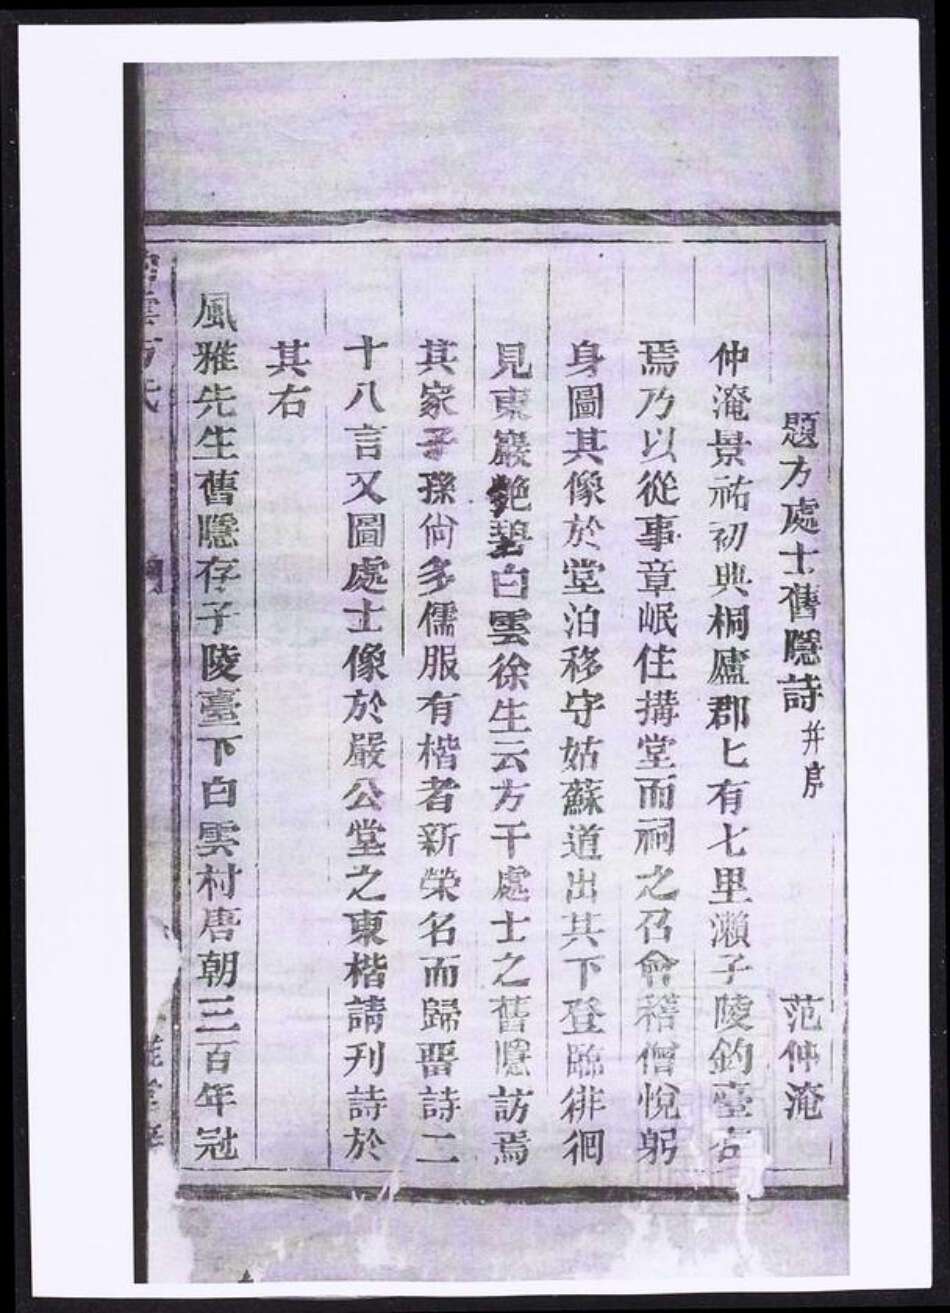 題方處士舊隱詩 并序 范仲淹
仲淹景祐初典桐廬郡七有七里瀨子陵釣臺在
焉乃以從事章岷往搆堂而祠之召會稽僧悅躬
身圖其像於堂洎移守姑蘇道出其下登臨徘徊
見東巖艷碧白雲徐生云方干處士之舊隱訪焉
其家子孫尙多儒服有楷者新榮名而歸畱詩二
十八言又圖處士像於嚴公堂之東楷請刋詩於
其右
風雅先生舊隱存子陵臺下白雲村唐朝三百年冠
雲方氏